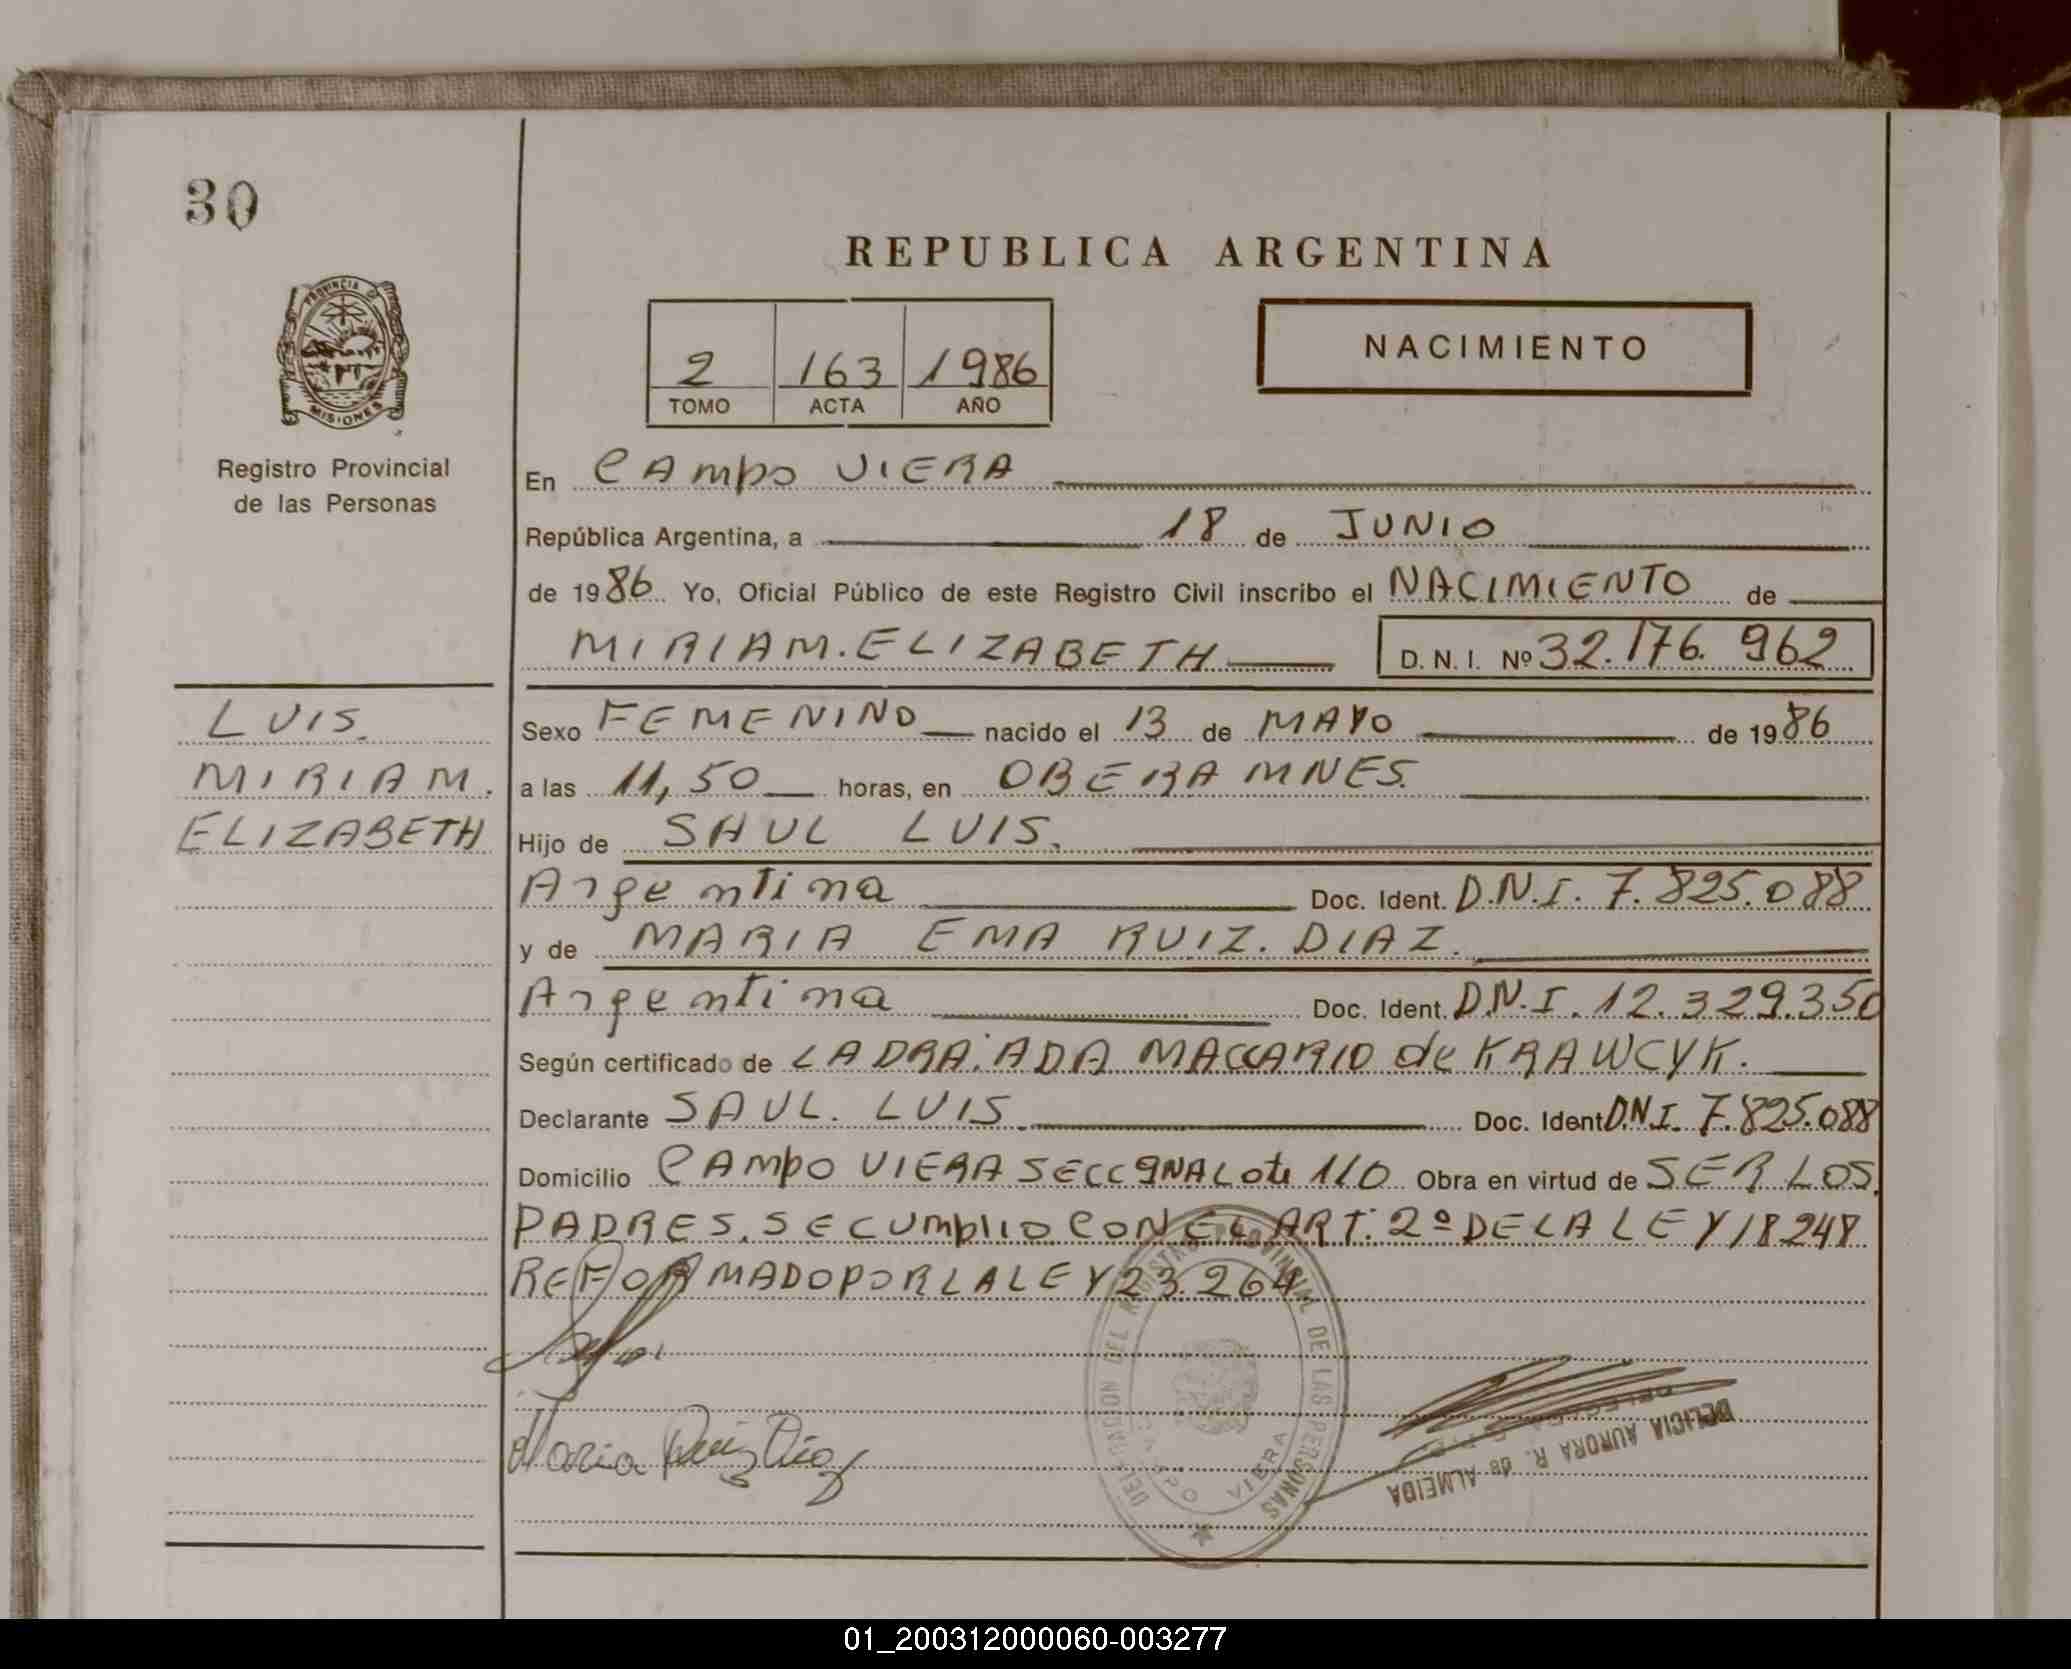 30
REPUBLICA ARGENTINA
PROVINCIA D
MISIONES
2 163 1986
TOMO ACTA AÑO
NACIMIENTO
Registro Provincial
de las Personas
En CAMPO VIERA
República Argentina, a 18 de JUNIO
de 1986 Yo, Oficial Público de este Registro Civil inscribo el NACIMIENTO de
MIRIAM. ELIZABETH D. N. I. Nº 32.176.962
LUIS.
MIRIAM.
ELIZABETH
Sexo FEMENINO nacido el 13 de MAYO de 1986
a las 11,50 horas, en OBERA MNES.
Hijo de SAUL LUIS.
Argentina Doc. Ident. D.N.I. 7.825.088
y de MARIA EMA RUIZ. DIAZ.
Argentina Doc. Ident. D.N.I. 12.329.350
Según certificado de LA DRA. ADA MACCARIO de KRAWCYK.
Declarante SAUL. LUIS Doc. Ident D.N.I. 7.825.088
Domicilio CAMPO VIERA SECC 9NA Lote 110 Obra en virtud de SER LOS
PADRES. SE CUMPLIO CON EL ART. 2º DE LA LEY 18.248
REFORMADO POR LA LEY 23.264.
Maria Ruiz Diaz
DELEGACION DEL REGISTRO PROVINCIAL DE LAS PERSONAS
CAMPO VIERA
DELICIA AURORA R. de ALMEIDA
01_200312000060-003277